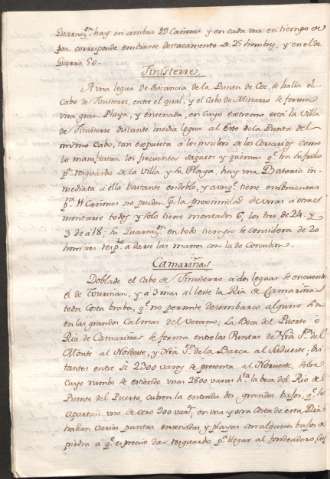 Guarnizⁿ hay en ambas 20 Cañones y en cada una en tiempo de
paz corresponde un destacamento de 25 hombres, y en el de
Guerra 50.
Finisterre
A una legua de distancia de la Punta de Cee, se halla el
Cabo de Finisterre, entre el qual, y el Cabo de se forma
una gran Playa, y ensenada, en cuyo extremo está la Villa
de Finisterre distante media legua al Este de la Punta del
mismo Cabo, tan expuesta a los insultos de los Corsarios como
lo manifiestan los frecuentes saqueos y quemas qᵉ ha sufrido
pᵃ resguardo de la Villa y su Playa, hay una Batería in-
mediata a ella bastante endeble, y aunqᵉ tiene embrasuras
pᵃ 11 Cañones no pueden pʳ la proximidad de unas a otras
montarse todos, y solo tiene montados 6, los tres de 24, y
3 de a 18; su Guarnizⁿ en todo tiempo se considera de 20
hombres respᵗᵒ a darse las manos con la de Corcubion.
Camariñas
Doblado el Cabo de Finisterre a dos leguas se encuentra
el de Touriñan, y a 3 mas al leste la Ria de Camariñas
toda Costa brava, qᵉ no permite desembarco alguno sino
en las grandes Calmas del Verano; La Boca del Puerto ó
Ria de Camariñas se forma entre las Puntas de Nʳᵃ Sʳᵃ del
Monte al Nordeste, y Nʳᵃ Sʳᵃ de la Barca al Sudueste, dis-
tantes entre si 2300 varas se presenta al Norueste, sobre
cuyo rumbo se extiende unas 2600 varas hᵗᵃ la boca del Rio de
Puente del Puerto, cubren la entrada dos grandes bajos qᵉ se
apartan uno de otro 500 varˢ, en una y otra costa de esta Ria
se hallan varias puntas entrantes, y playas con algunos bajos de
piedra a qᵉ es preciso dar resguardo pᵃ llegar al fondeadero, los